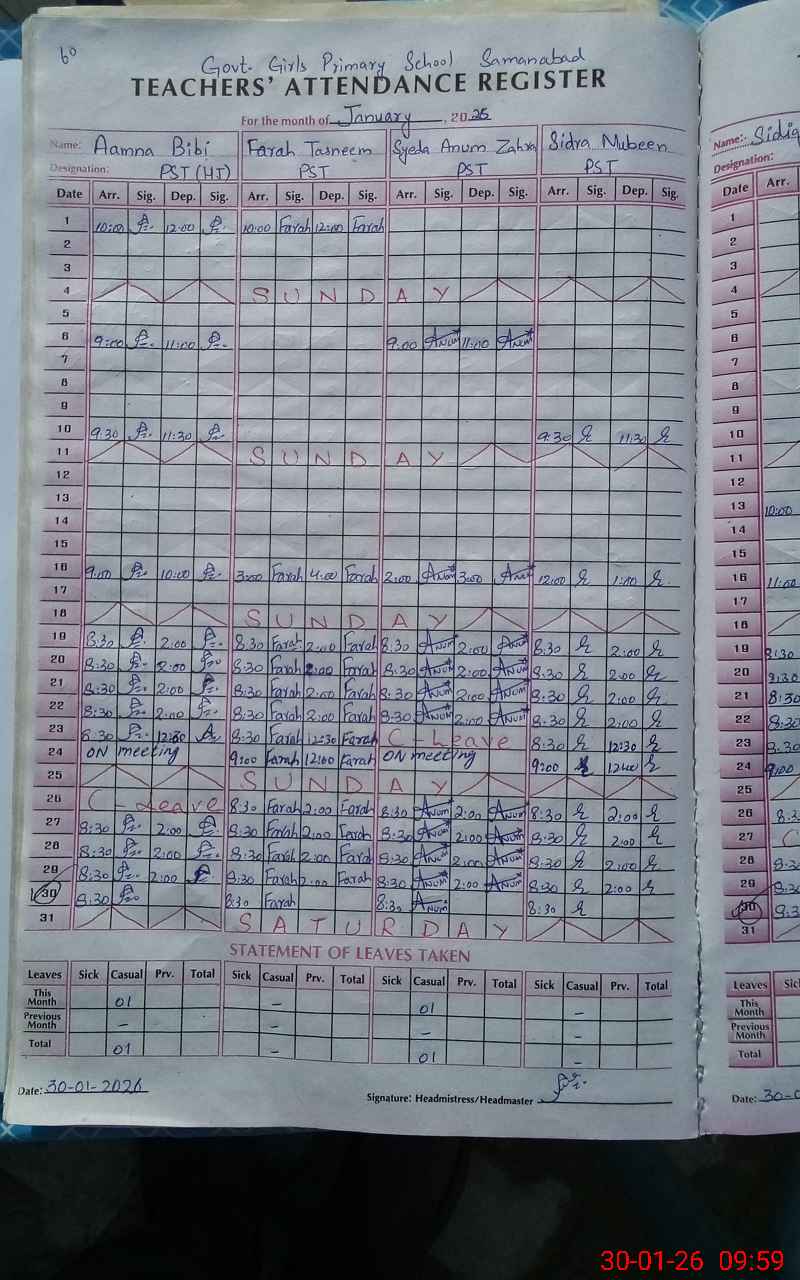 60
Govt. Girls Primary School Samanabad
TEACHERS' ATTENDANCE REGISTER
For the month of January, 2025
Name: Aamna Bibi Farah Tasneem Syeda Anum Zahra Sidra Mubeen
Designation: PST (HT) PST PST PST
Date Arr. Sig. Dep. Sig. Arr. Sig. Dep. Sig. Arr. Sig. Dep. Sig. Arr. Sig. Dep. Sig.
1 10:00 12:00 10:00 Farah 12:00 Farah
2
3
4 SUNDAY
5
6 9:00 11:00 9.00 Anum 11:00 Anum
7
8
9
10 9.30 11:30 9:30 11:30
11 SUNDAY
12
13
14
15
16 9.00 10:00 3:00 Farah 4:00 Farah 2:00 Anum 3:00 Anum 12:00 1:00
17
18 SUNDAY
19 8:30 2:00 8:30 Farah 2:00 Farah 8:30 Anum 2:00 Anum 8:30 2:00
20 8:30 2:00 8:30 Farah 2:00 Farah 8:30 Anum 2:00 Anum 8:30 2:00
21 8:30 2:00 8:30 Farah 2:00 Farah 8:30 Anum 2:00 Anum 8:30 2:00
22 8:30 2:00 8:30 Farah 2:00 Farah 8:30 Anum 2:00 Anum 8:30 2:00
23 8:30 12:30 8:30 Farah 12:30 Farah C-Leave 8:30 12:30
24 ON meeting 9:00 Farah 12:00 Farah ON meeting 9:00
25 SUNDAY
26 C-Leave 8:30 Farah 2:00 Farah 8:30 Anum 2:00 Anum 8:30 2:00
27 8:30 2:00 8:30 Farah 2:00 Farah 8:30 Anum 2:00 Anum 8:30 2:00
28 8:30 2:00 8:30 Farah 2:00 Farah 8:30 Anum 2:00 Anum 8:30 2:00
29 8:30 2:00 8:30 Farah 2:00 Farah 8:30 Anum 2:00 Anum 8:30 2:00
30 8:30 8:30 Farah 8:30 Anum 8:30
31 SATURDAY
STATEMENT OF LEAVES TAKEN
Leaves Sick Casual Prv. Total Sick Casual Prv. Total Sick Casual Prv. Total Sick Casual Prv. Total
This Month 01 - 01 -
Previous Month - - - -
Total 01 - 01 -
Date: 30-01-2026
Signature: Headmistress/Headmaster
Name: Sidiq
Designation:
Date Arr.
1
2
3
4
5
6
7
8
9
10
11
12
13 10:00
14
15
16 11:00
17
18
19 8:30
20 8:30
21 8:30
22 8:30
23 8:30
24 9:00
25
26 8:3
27 C
28 8:3
29 8:3
30 8:3
31
Leaves Sic
This Month
Previous Month
Total
Date: 30-0
30-01-26 09:59